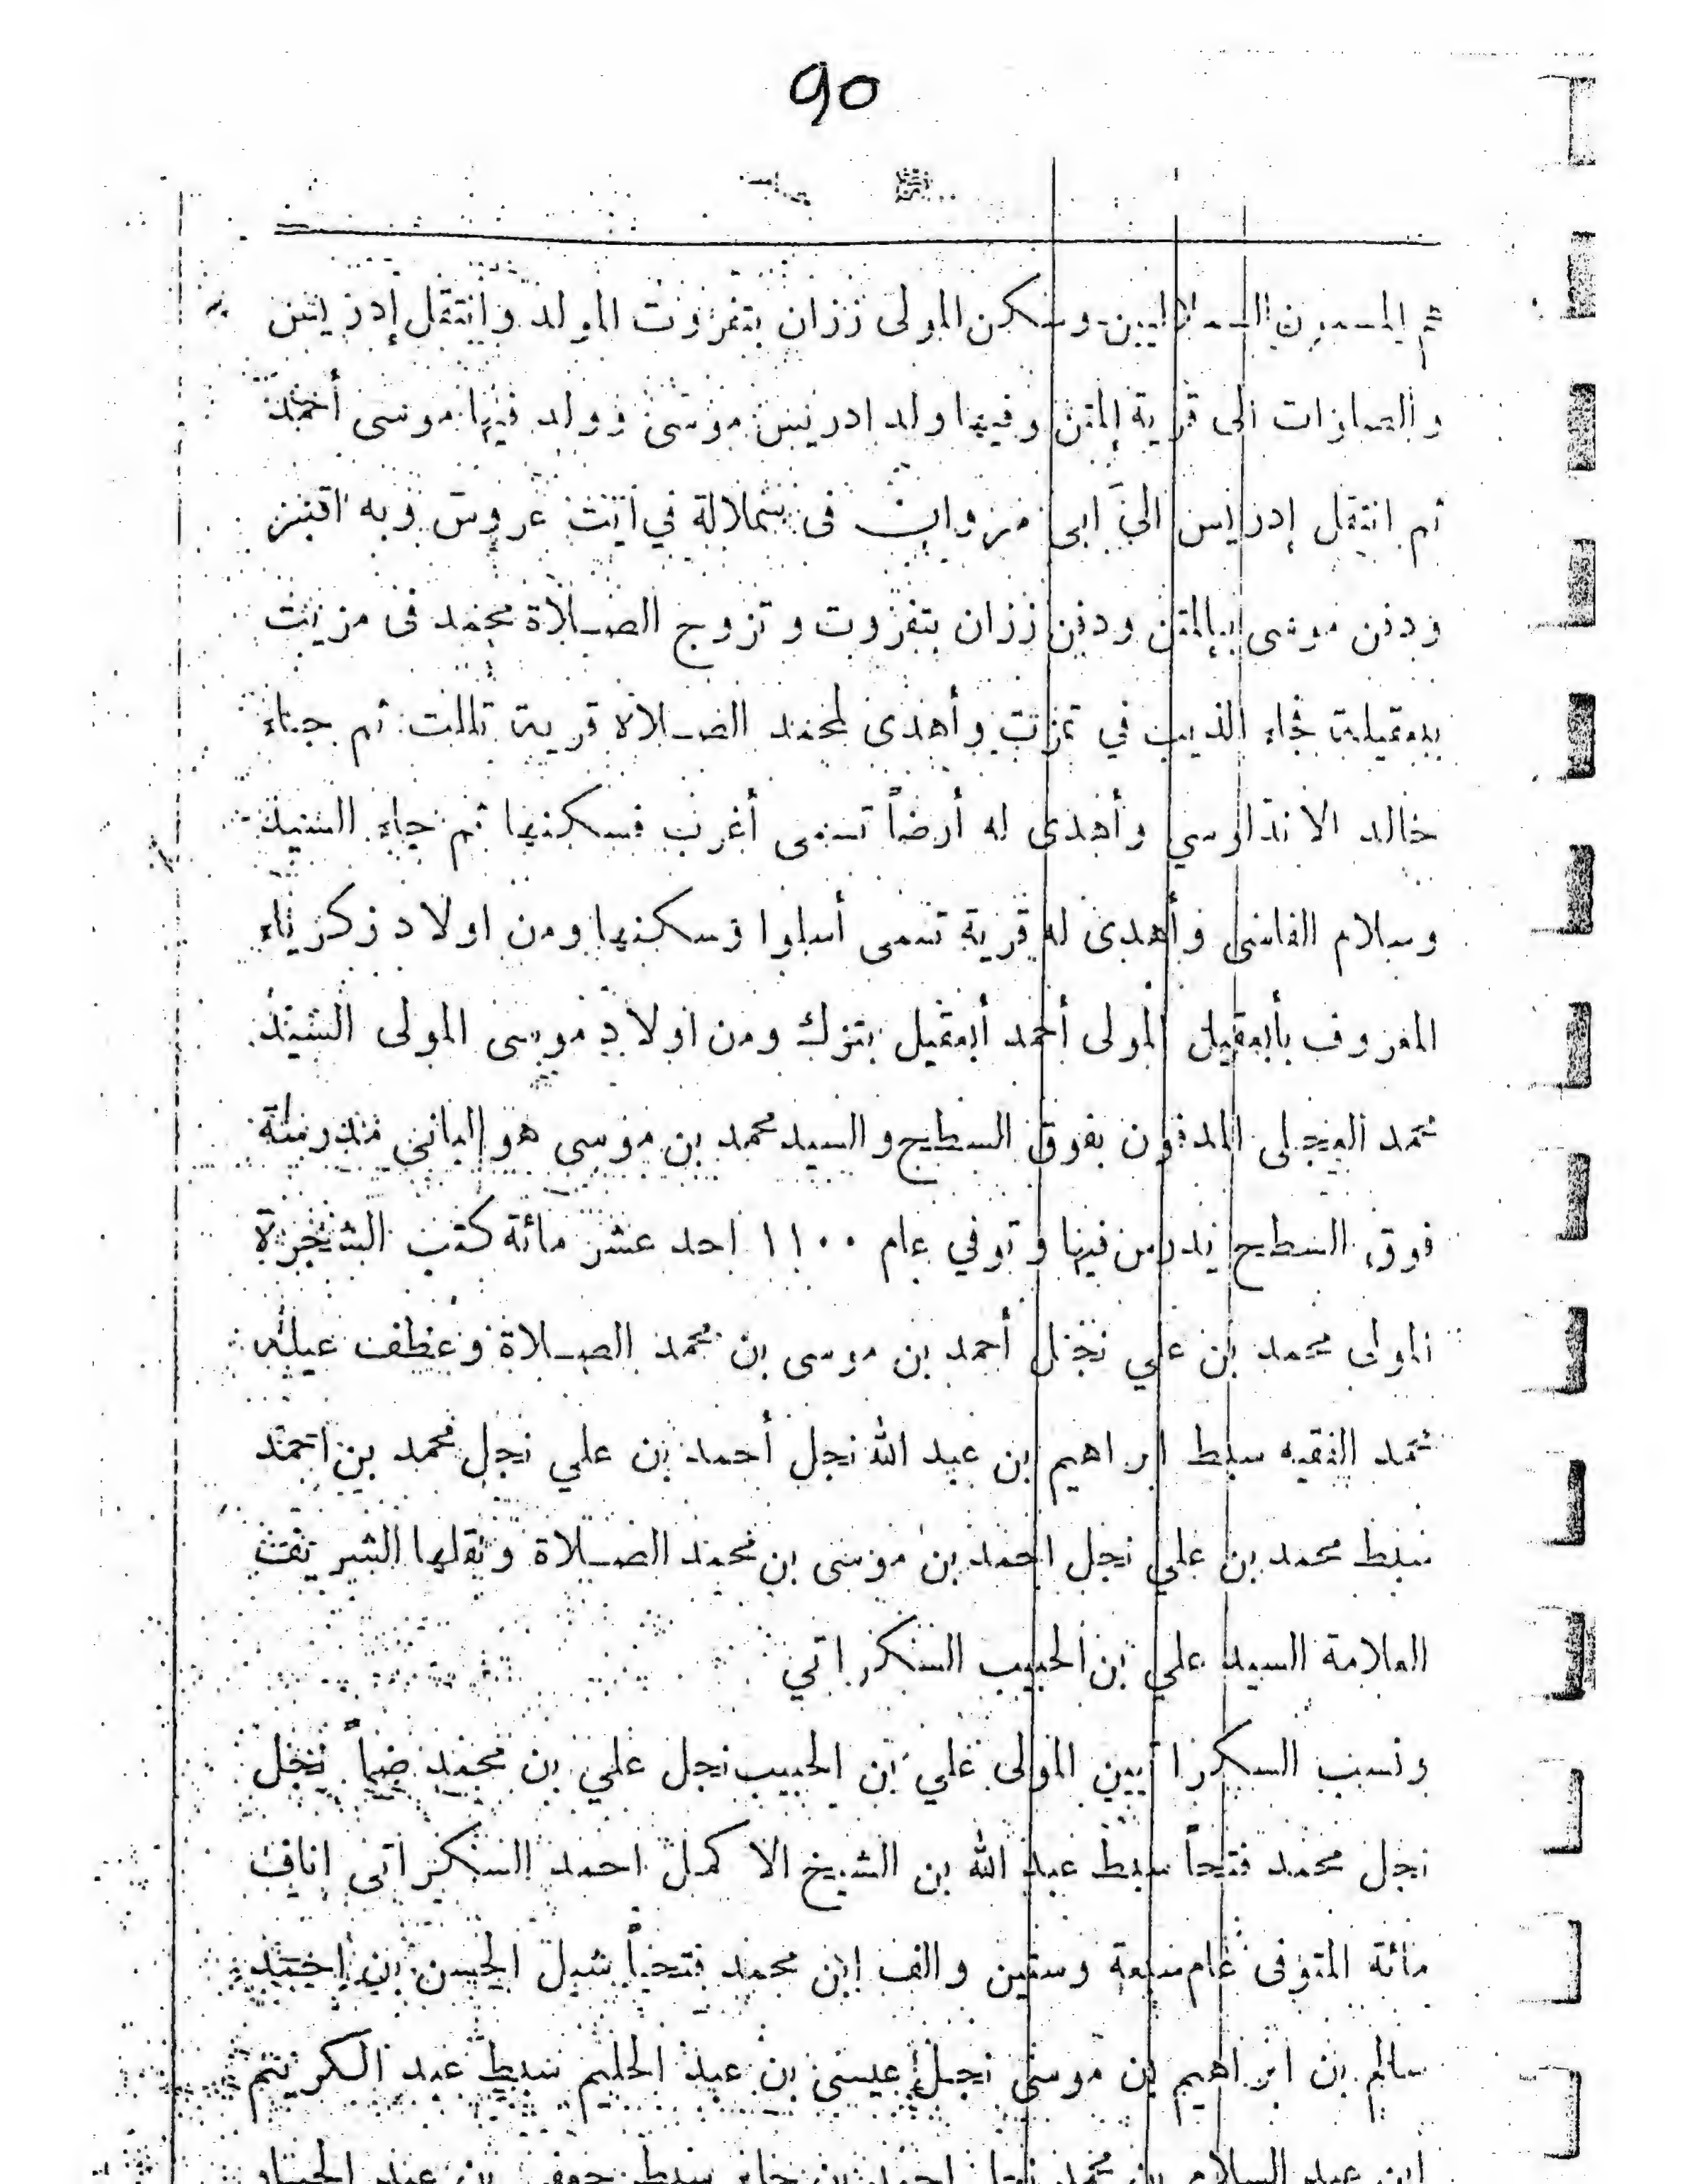 90
وسكن المولى ززان بتفزوت المولد وانتقل إدريس
والصازات الى قرية إلمتن وفيها ولد ادريس موسى وولد فيها موسى أحمد
ثم انتقل إدريس الى ابى مزوان فى سملالة في أيت عروس وبه اقبر
ودفن موسى بإلمتن ودفن ززان بتفزوت و تزوج الصلاة محمد فى مزيت
بعقيلة فجاء الذيب في تمزت وأهدى لمحمد الصلاة قرية تالت ثم جاء
خالد الاندلوسي وأهدى له أرضاً تسمى أغرب فسكنها ثم جاء السيد
وسلام الفاسى وأهدى له قرية تسمى أسلوا فسكنها ومن اولاد زكرياء
المعروف بأبعقيل المولى أحمد أبعقيل بتزك ومن اولاد موسى المولى السيد
محمد العجلى المدفون بفوق السطيح و السيد محمد بن موسى هو البانى مدرسة
فوق السطيح يدرس فيها وتوفي عام ١١٠٠ احد عشر مائة كتب الشجرة
المولى محمد بن علي نجل أحمد بن موسى بن محمد الصلاة وعطف عيله
محمد الفقيه سبط ابراهيم بن عبد الله نجل أحمد بن علي نجل محمد بن احمد
سبط محمد بن علي نجل احمد بن موسى بن محمد الصلاة ونقلها الشريف
العلامة السيد علي بن الحبيب السكراتي
ونسب السكراتيين المولى علي بن الحبيب نجل علي بن محمد ضماً نجل
نجل محمد فتحاً سبط عبد الله بن الشيخ الاكمل احمد السكراتى إناف
مائة المتوفى عام سبعة وستين والف ابن محمد فتحاً شبل الحسن بن احمد
سالم بن ابراهيم بن موسى نجل عيسى بن عبد الحليم سبط عبد الكريم
ابن عبد السلام بن محمد نجل احمد بن جابر سبط جعفر بن عبد الجبار